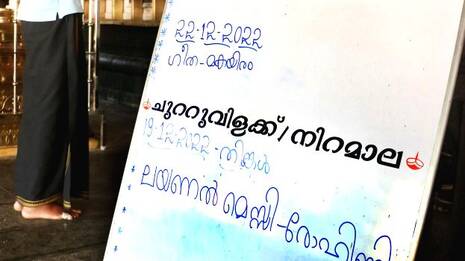 22-12-2022
ഗീത-മകയിരം
ചുറ്റുവിളക്ക്/നിറമാല
19-12-2022-തിങ്കൾ
ലയണൽ മെസ്സി-രോഹിണി